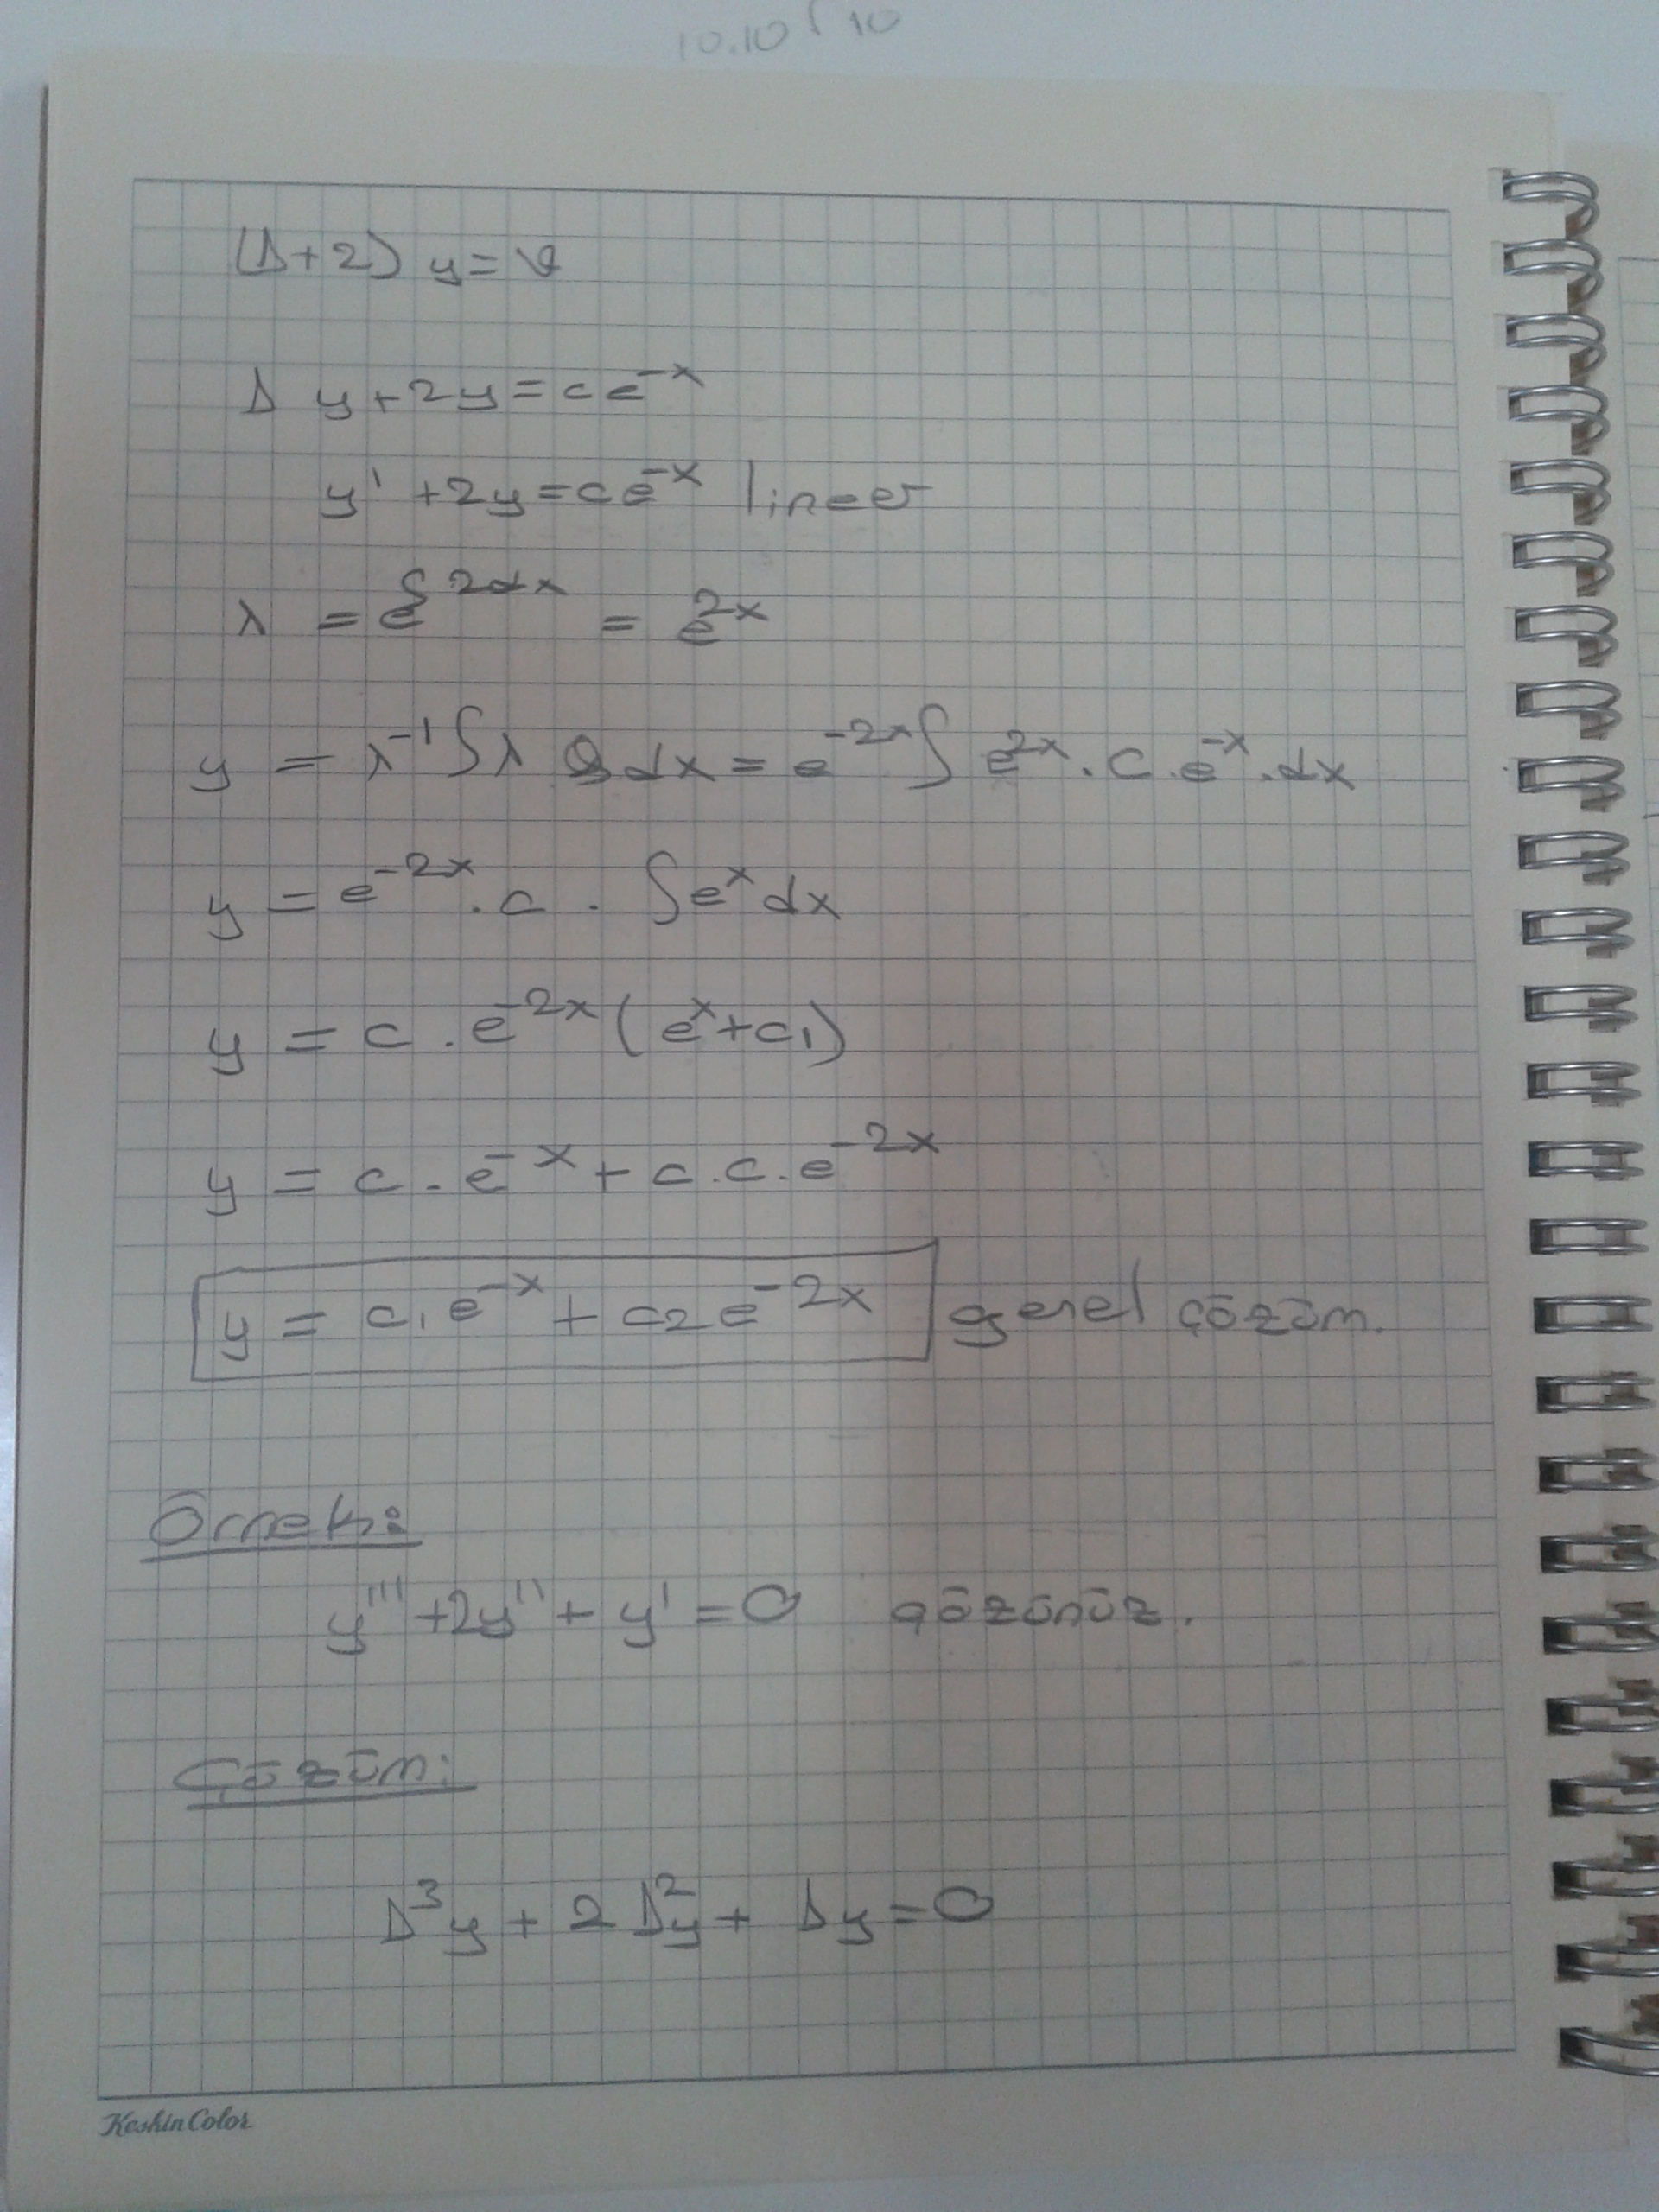 10.10 10
(D+2) y = v
D y + 2y = ce⁻ˣ
y' + 2y = ce⁻ˣ lineer
λ = e^∫2dx = e²ˣ
y = λ⁻¹ ∫ λ Q dx = e⁻²ˣ ∫ e²ˣ . c . e⁻ˣ . dx
y = e⁻²ˣ . c . ∫ eˣ dx
y = c . e⁻²ˣ (eˣ + c₁)
y = c . e⁻ˣ + c . c . e⁻²ˣ
y = c₁e⁻ˣ + c₂e⁻²ˣ genel çözüm.
Örnek:
y''' + 2y'' + y' = 0 çözünüz.
Çözüm:
D³y + 2D²y + Dy = 0
KeskinColor